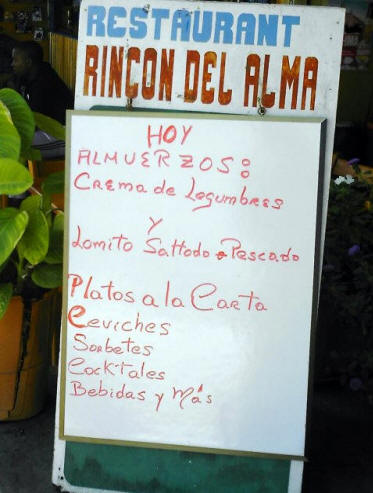 RESTAURANT
RINCON DEL ALMA
HOY
ALMUERZOS:
Crema de Legumbres
y
Lomito Saltado o Pescado
Platos a la Carta
Ceviches
Sorbetes
Cocktales
Bebidas y Más